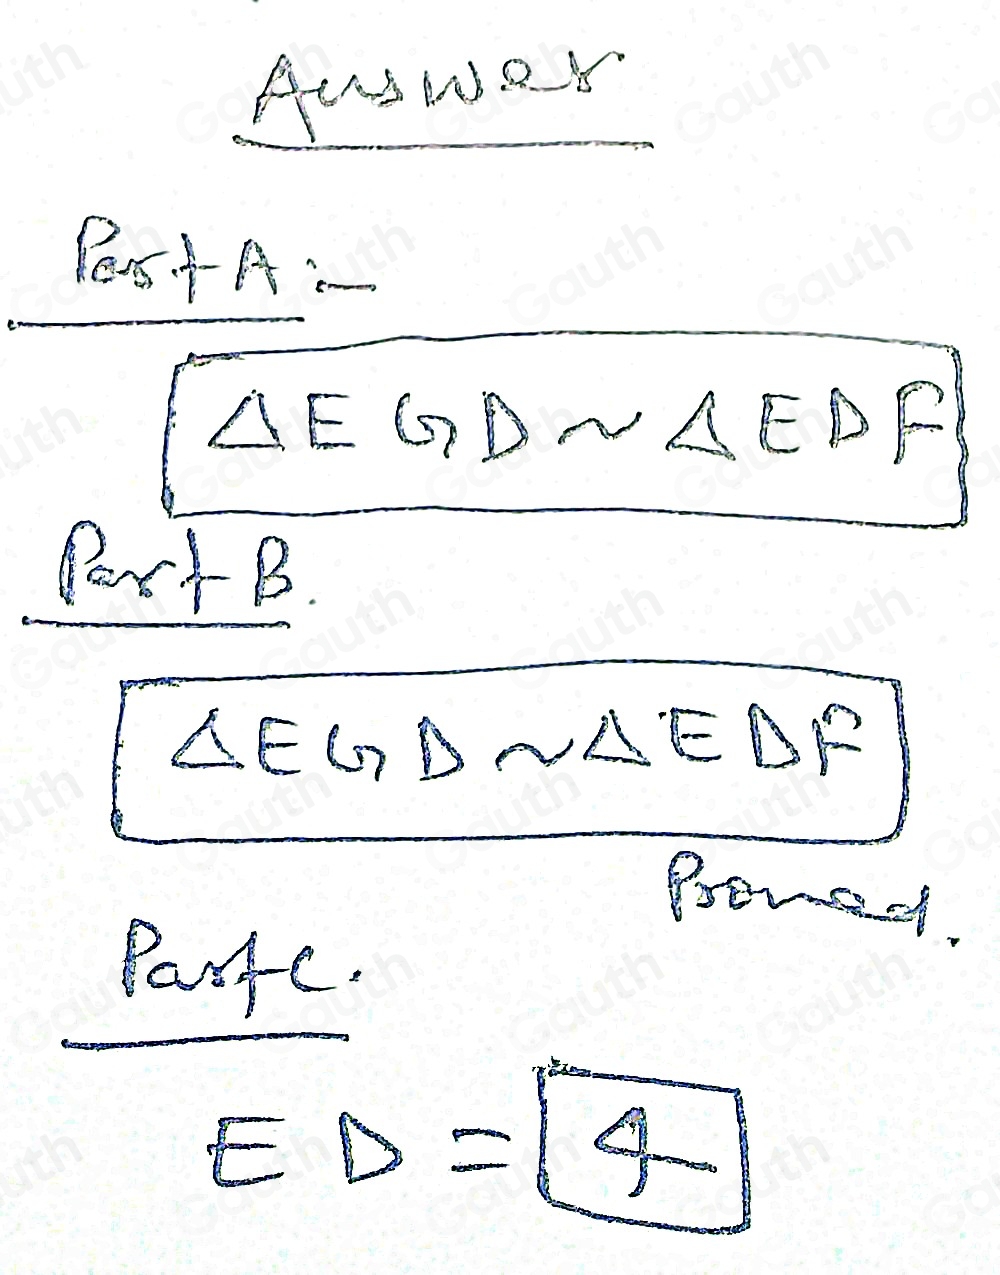 Answer
Part A :-
△EGD ~ △EDF
Part B.
△EGD ~ △EDF
Proved.
Part C.
ED = 4